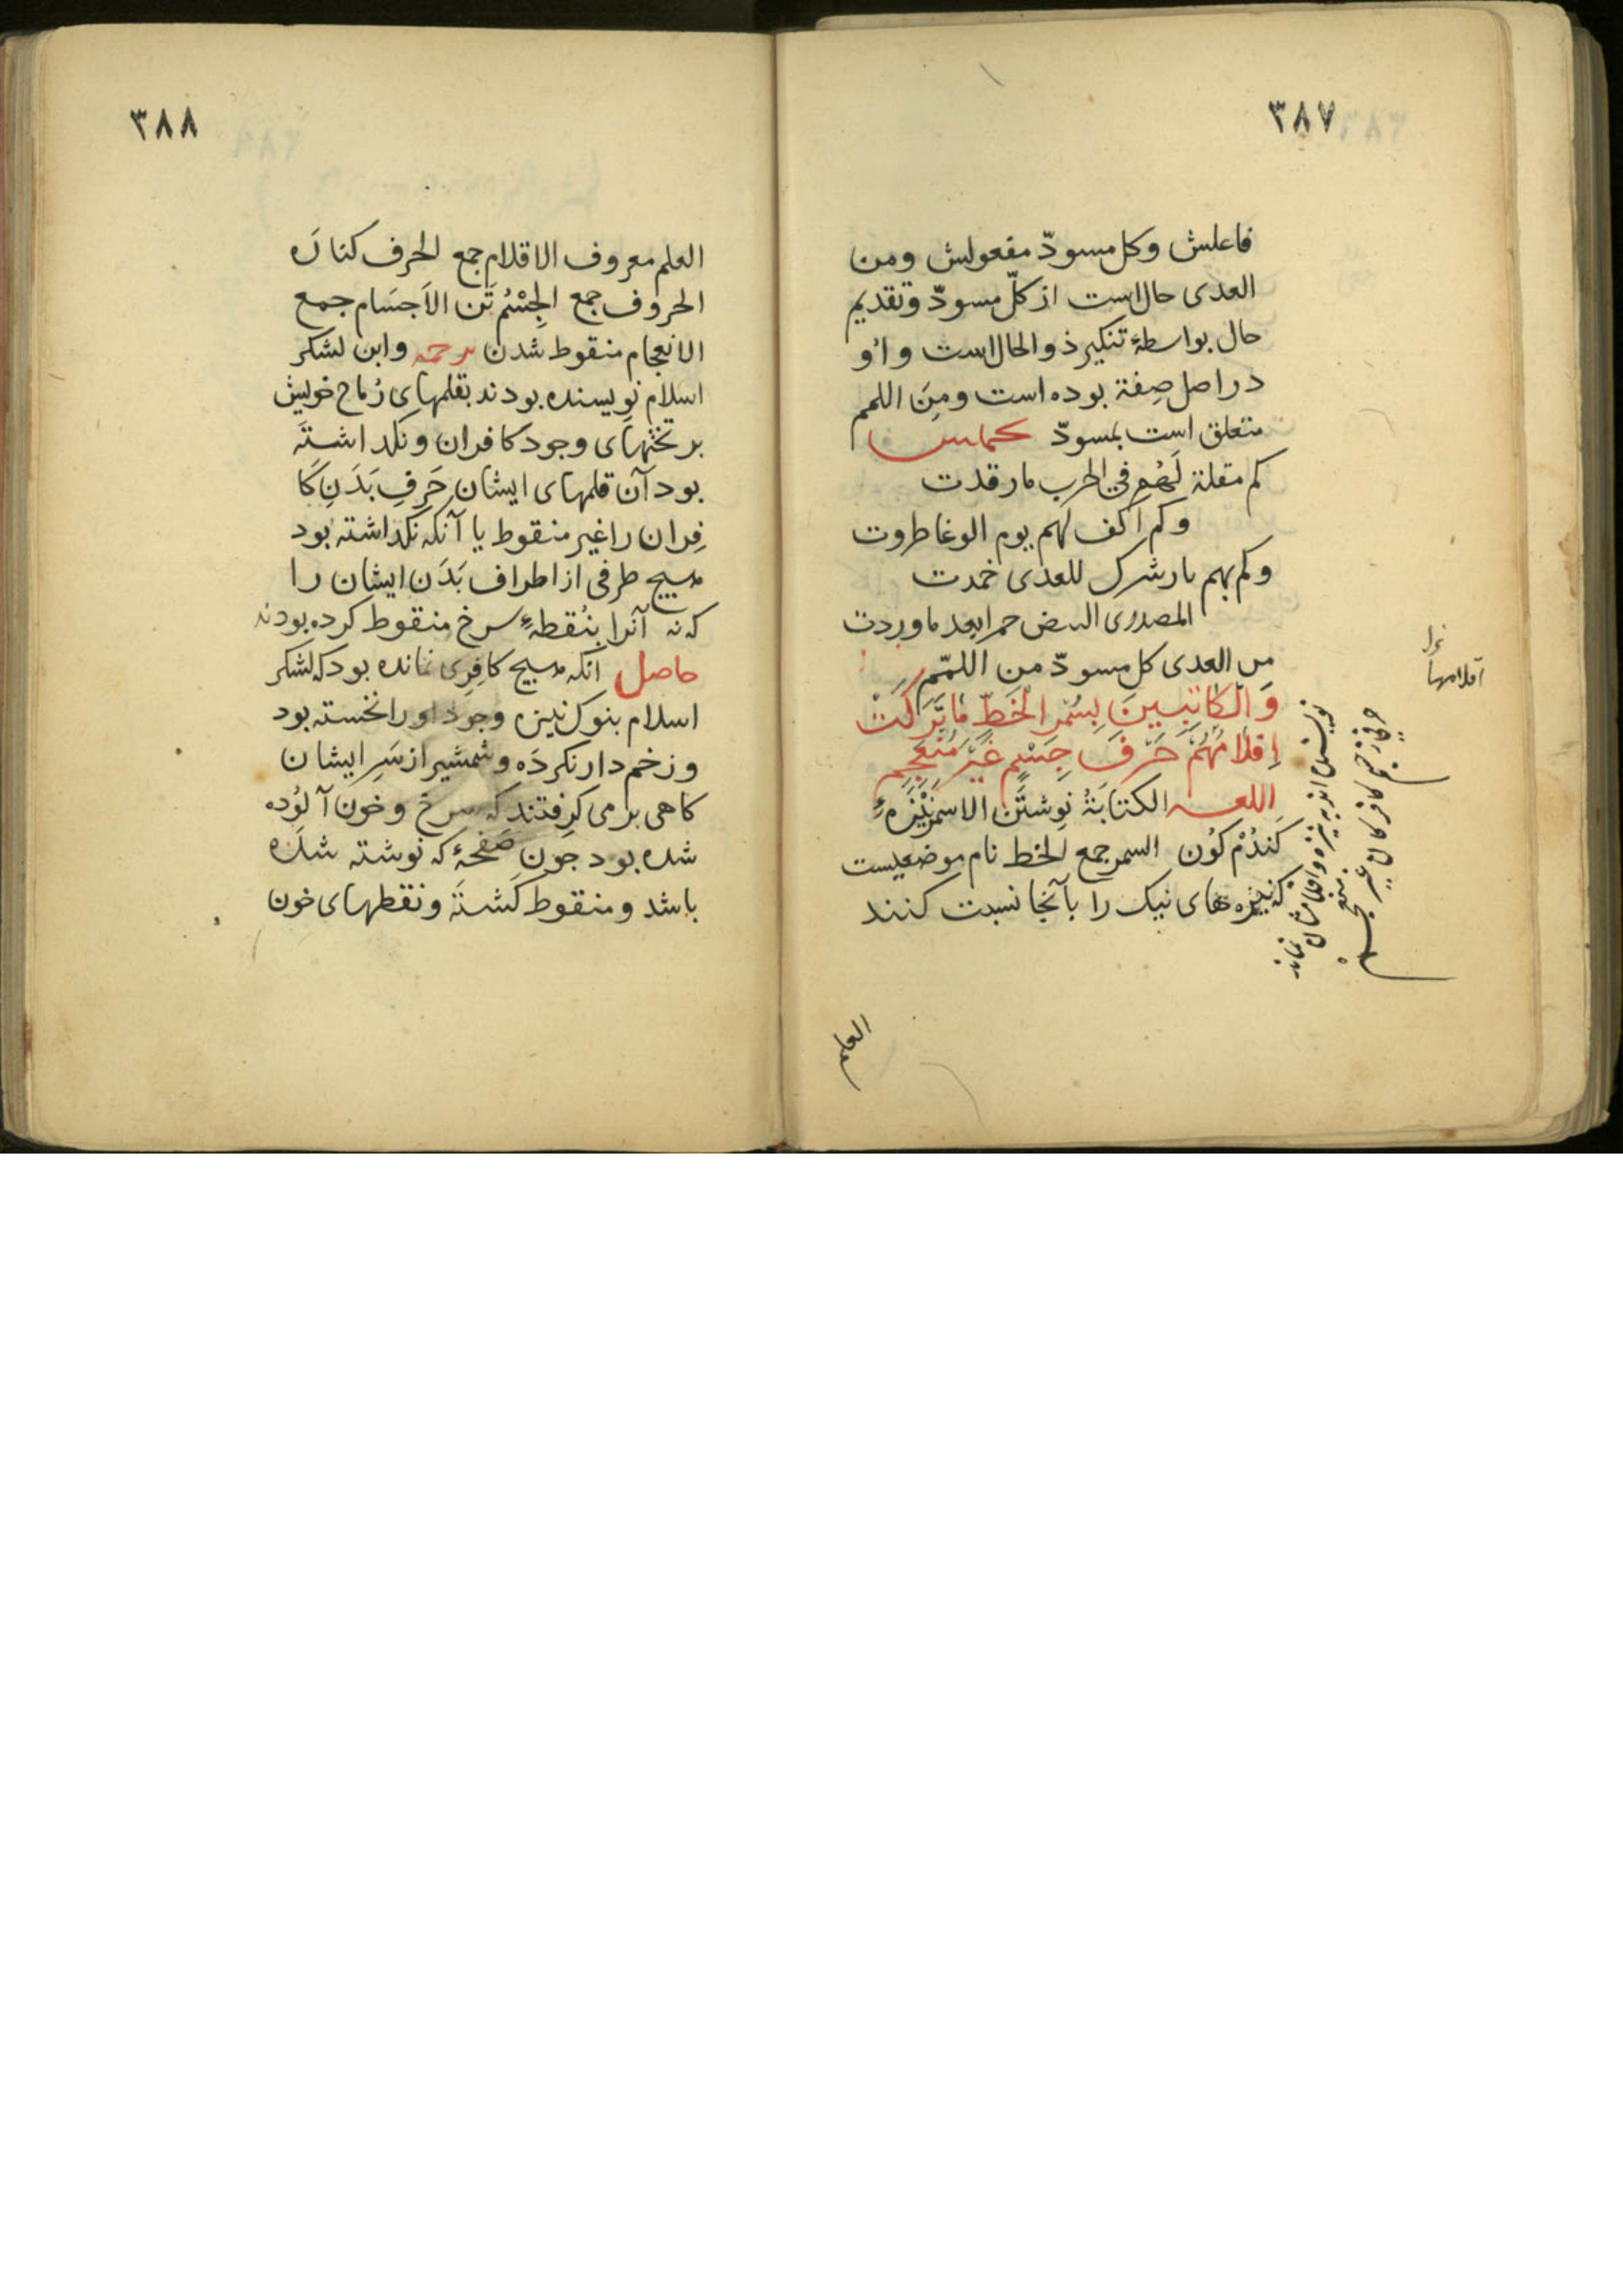 ٣٨٧
فاعلش وكل مسودّ مفعولش ومن
العدى حال است از كلّ مسودّ وتقديم
حال بواسطهٔ تنكير ذو الحال است واو
در اصل صِفة بوده است ومِنَ اللمم
متعلق است بمسودّ
كم مقلة لَهُم في الحرب مارقدت
وكم اكف لهم يوم الوغا طروت
وكم بهم نار شرك للعدى خمدت
المصدرى البيض حمرا بعد ما وردت
من العدى كل مسودّ من اللمم
وَالْكَاتِبِينَ بِسُمْرِ الْخَطِّ مَا تَرَكَتْ
اقْلَامُهُمْ حَرْفَ جِسْمٍ غَيْرَ مُنْعَجِمِ
اللغه الكتابَةُ نوِشتَن الاسمَر نيزهٔ
كندُم كوُن السمر جمع الخط نام موضعيست
كه نيزه هاى نيك را بآنجا نسبت كنند
اقلامها
العلم
٣٨٨
العلم معروف الاقلام جمع الحرف كناره
الحروف جمع الجِسْمُ تَن الاَجسَام جمع
الانعجام منقوط شدن ترجمه واين لشكر
اسلام نويسنده بودند بقلمهاى رُماح خويش
بر تختهاى وجود كافران ونكذاشته
بود آن قلمهاى ايشان حَرفِ بَدَنِ كا
فِران را غير منقوط يا آنكه نكذاشته بود
هيچ طرفى از اطراف بَدَن ايشان را
كه نه آنرا بنُقطهٔ سرخ منقوط كرده بودند
حاصل انكه هيچ كافِرى نمانده بود كه لشكر
اسلام بنوك نيزه وجود او را نخسته بود
وزخم دار نكرده وشمشير از سَرِ ايشان
كاهى بر مى كرفتند كه سرخ وخون آلوُده
شده بود چون صَفحهٔ كه نوشته شده
باشد ومنقوط كشته ونقطهاى خون